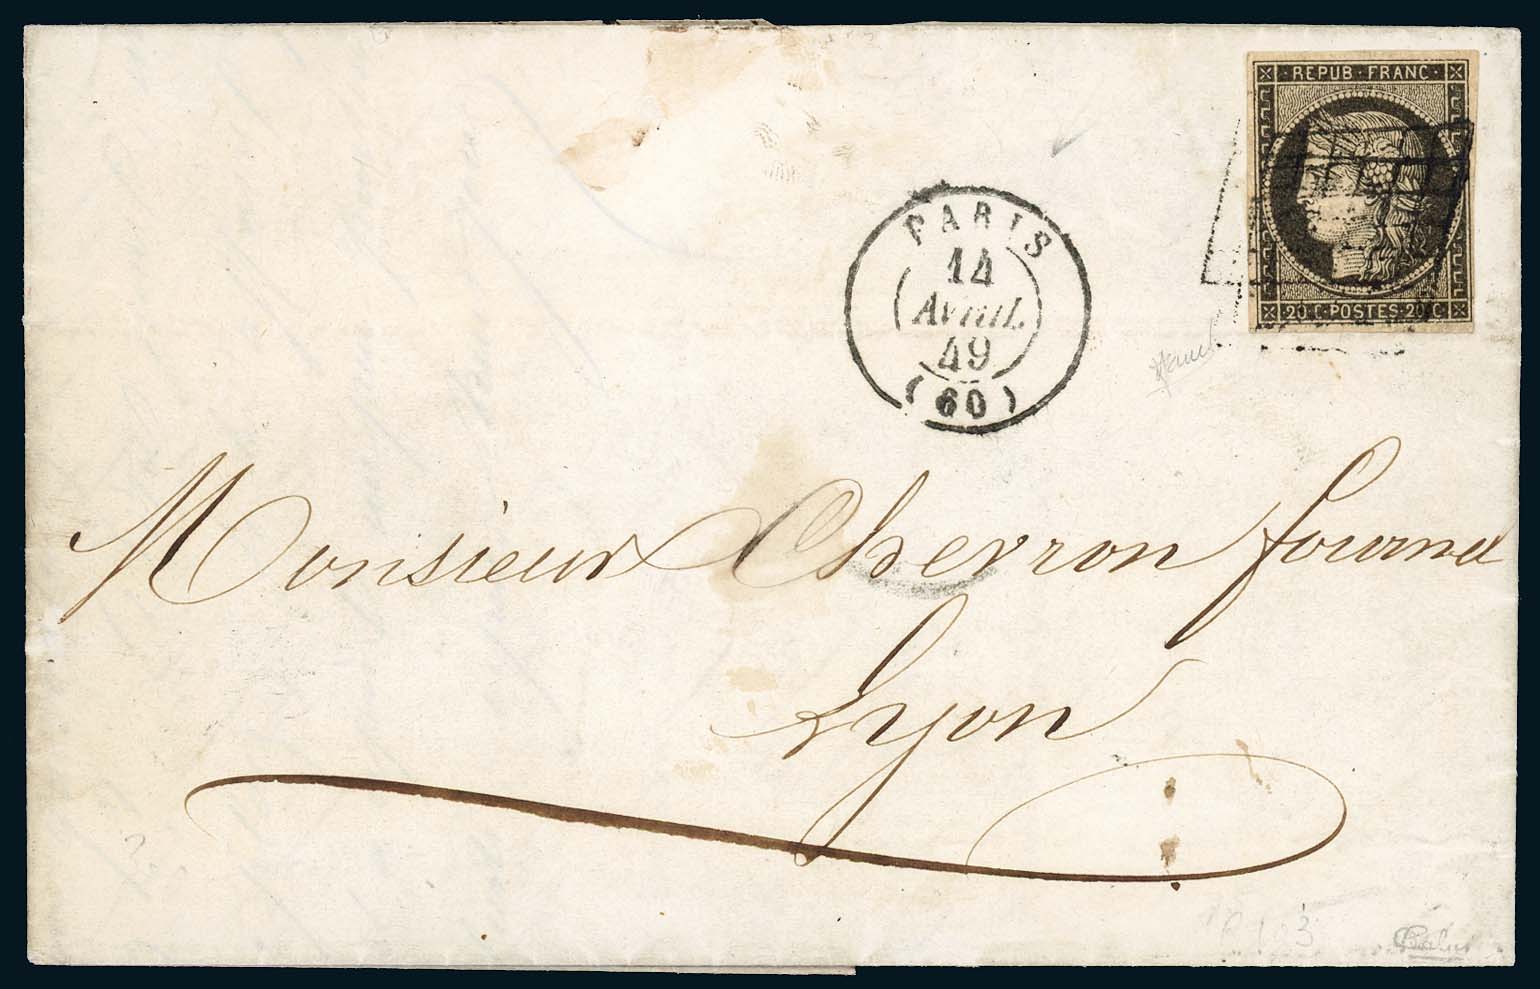 REPUB · FRANC ·
20 C · POSTES · 20 C
PARIS
14
AVRIL
49
(60)
Monsieur Cherron fournel
Lyon
3